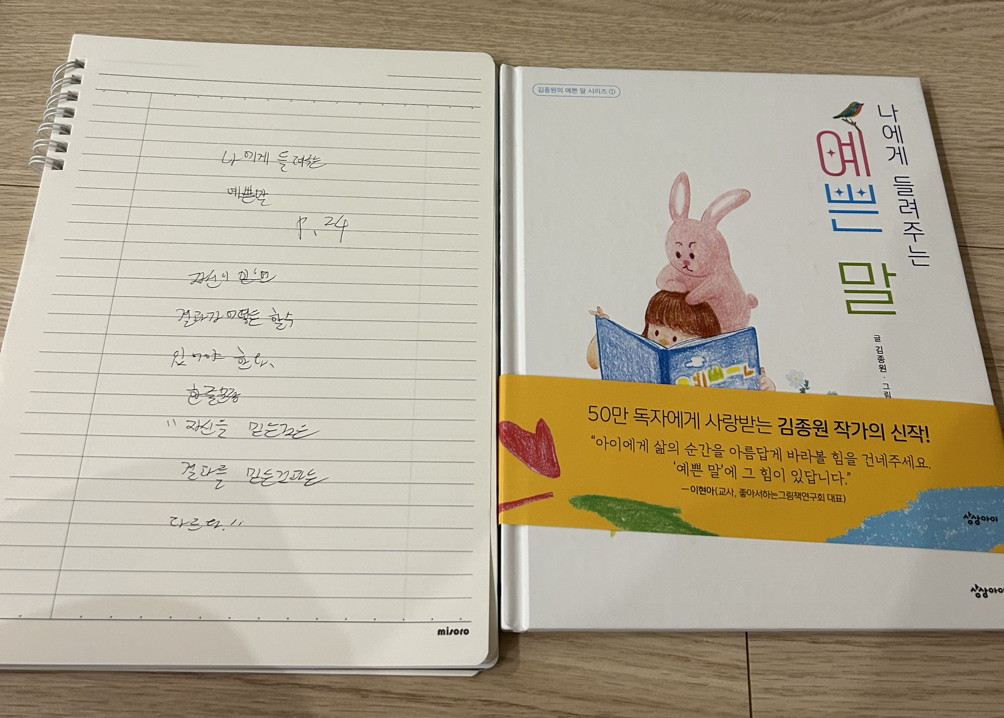 나에게 들려주는
예쁜말
P. 24
자신의 믿음
결과가 어떻든 할수
있어야 한다.
한글문장
"자신을 믿는것은
결과를 믿는것과는
다르다."
misoro
김종원의 예쁜 말 시리즈 ①
나에게 들려주는
예쁜 말
글 김종원 · 그림
50만 독자에게 사랑받는 김종원 작가의 신작!
“아이에게 삶의 순간을 아름답게 바라볼 힘을 건네주세요.
‘예쁜 말’에 그 힘이 있답니다.”
—이현아(교사, 좋아서하는그림책연구회 대표)
상상아이
상상아이